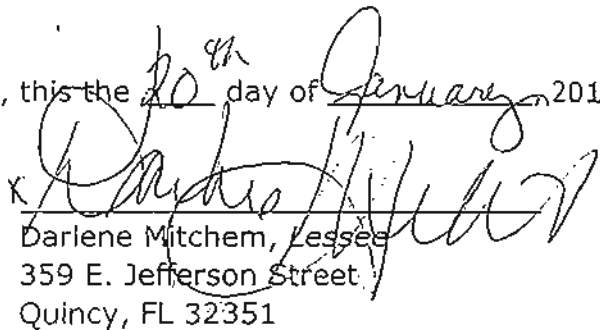 , this the 20th day of January, 201
X
Darlene Mitchem, Lessee
359 E. Jefferson Street
Quincy, FL 32351